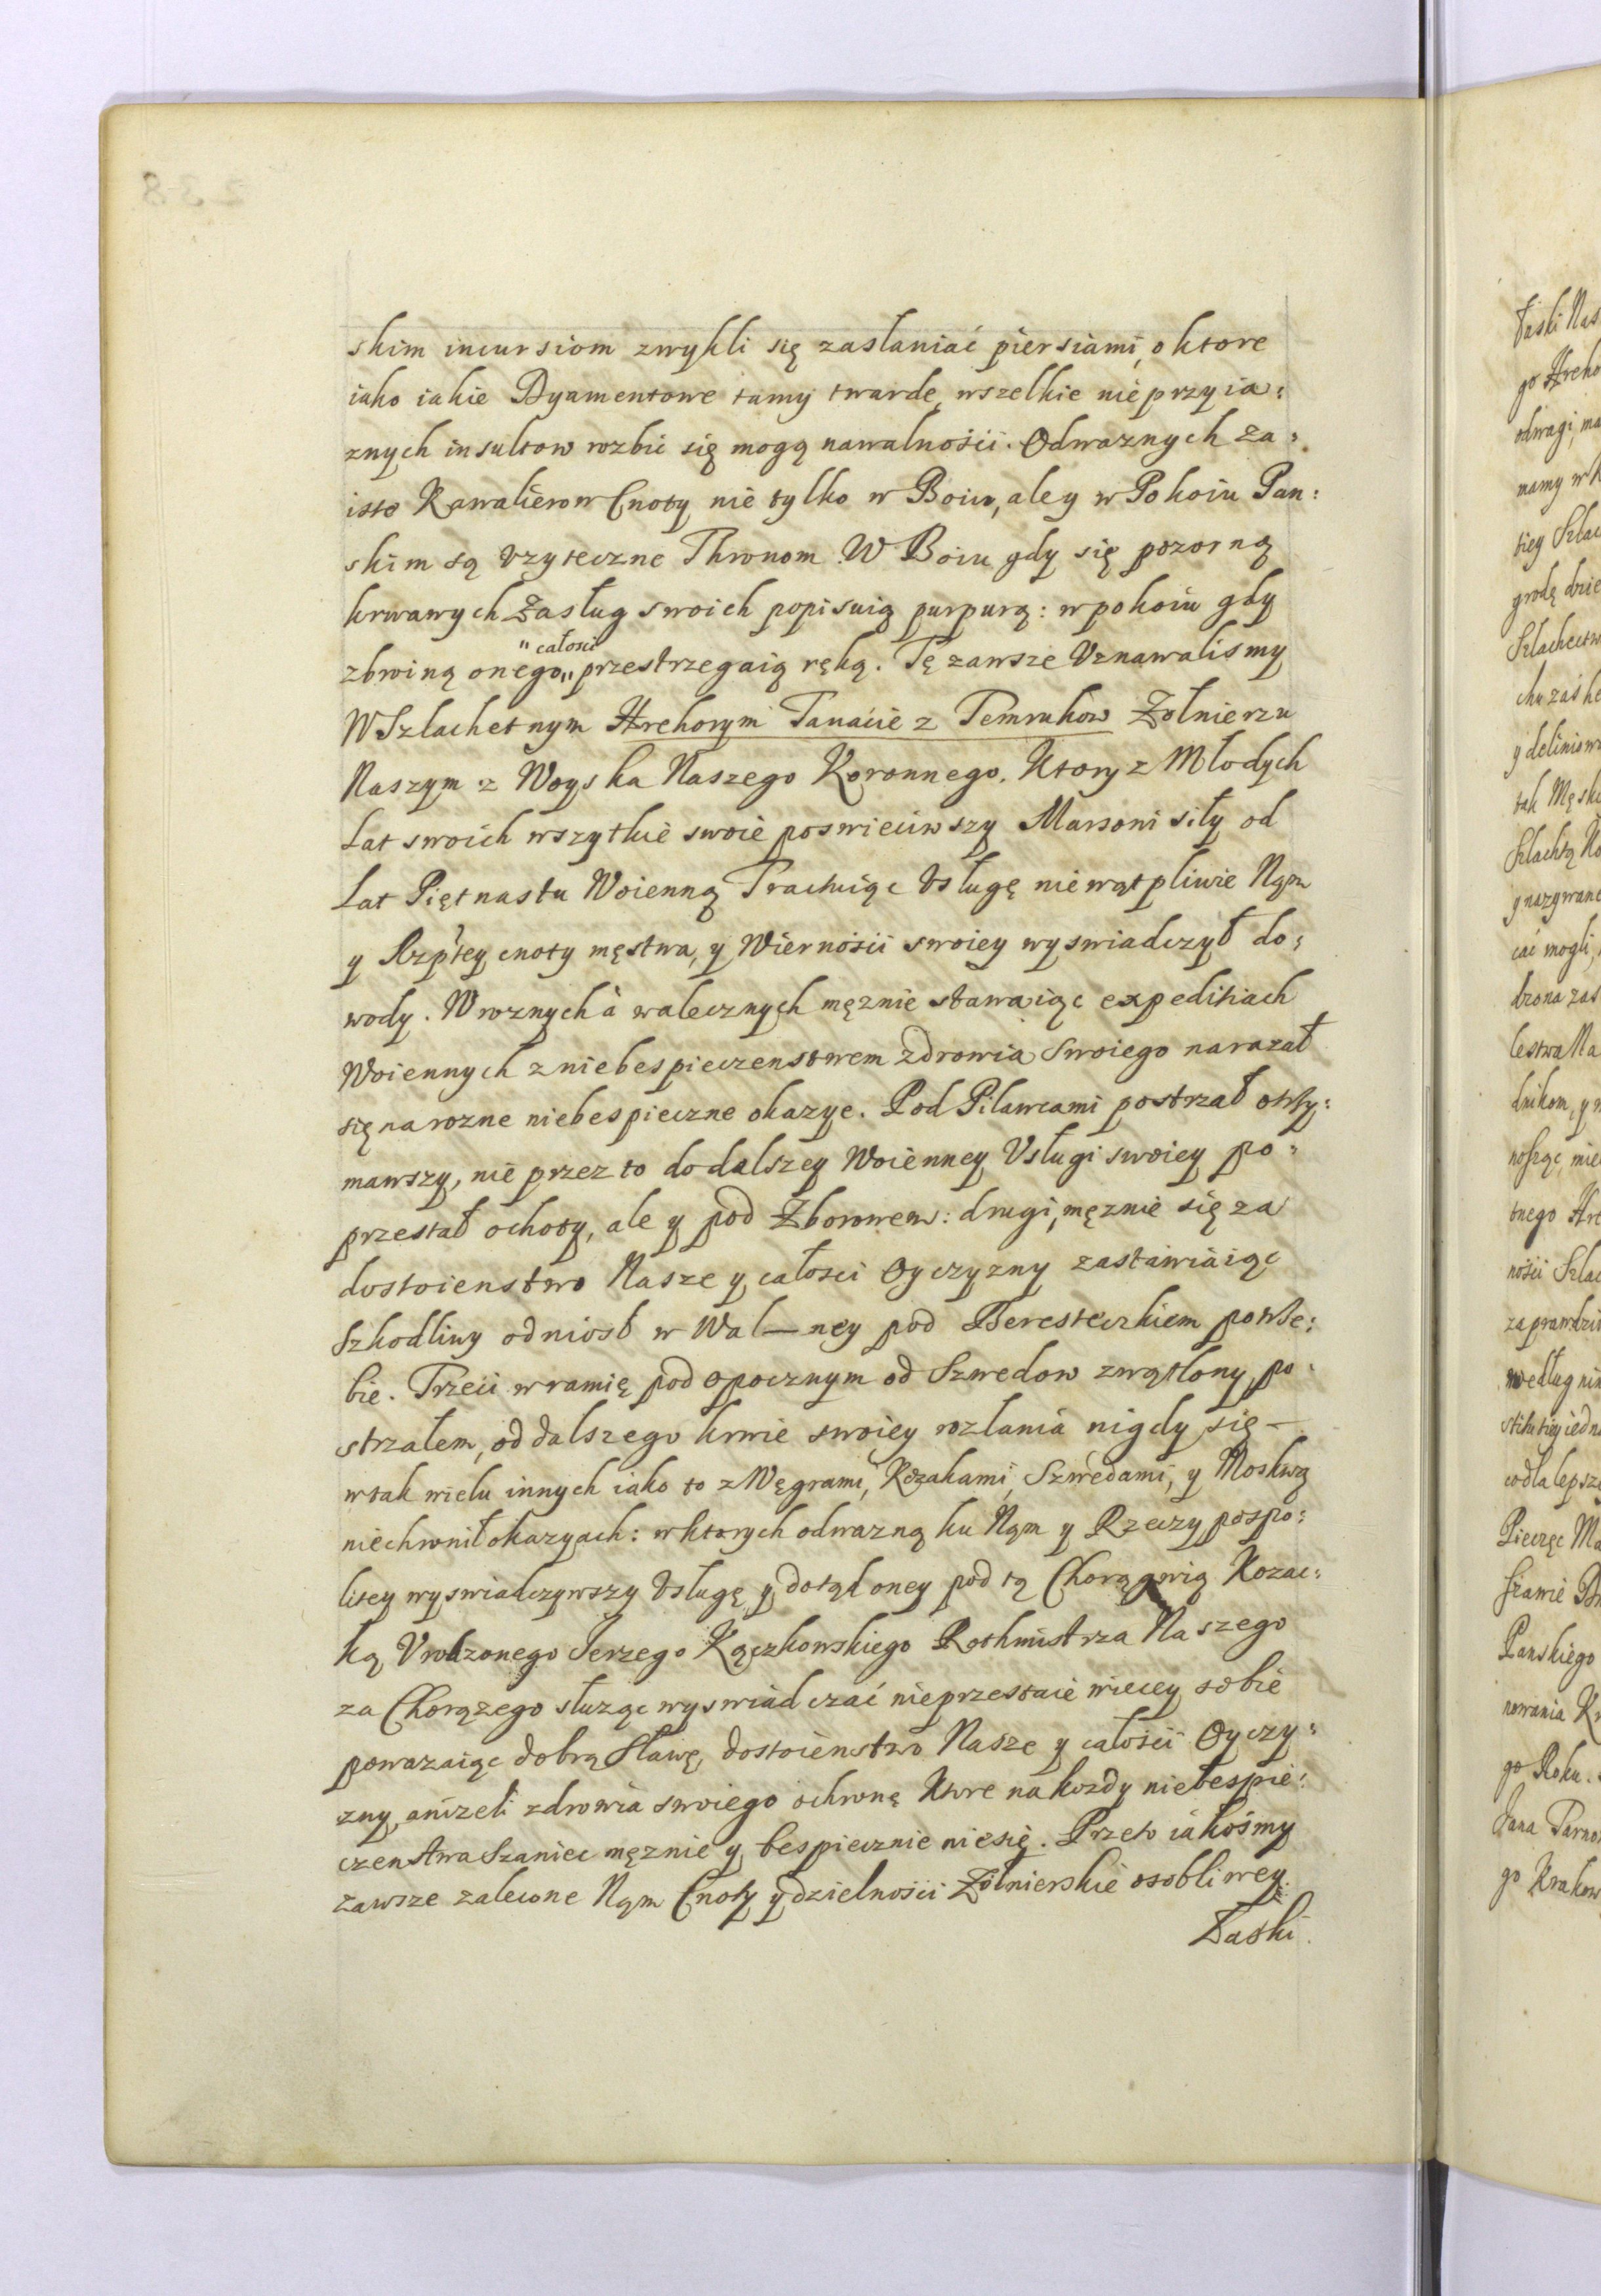 skim incursiom zwykli się zasłaniać piersiami, o ktore
iako iakie Dyamentowe tamy twarde, wszelkie nieprzyia:
znych insultow rozbić się mogą nawalności. Odwaznych za:
iste Kawalierow Cnoty nie tylko w Boiu, ale y w Pokoiu Pan:
skim są vzyteczne Thronom. W Boiu gdy się pozorną
krwawych Zasług swoich popisuią purpurą: w pokoiu gdy
"całosci
zbroiną onego„ przestrzegaią ręką. Tę zawsze Vznawalismy
W Szlachetnym Hrehorym Tanacie z Temrukow Zołnierzu
Naszym z Woyska Naszego Koronnego. Ktory z Młodych
Lat swoich wszytkie swoie poswieciwszy Marsowi siły od
Lat Piętnastu Woienną Tractuiąc Vsługę niewątpliwie Nąm
y Rzptey cnoty męstwa, y Wiernosci swoiey wyswiadczył do:
wody. W roznych à walecznych męznie stawaiąc expeditiach
Woiennych z niebespieczenstwem zdrowia Swoiego narazał
się na rozne niebespieczne okazye. Pod Pilawcami postrzał otrzy:
mawszy, nie przez to do dalszey Woienney Vsługi swoiey po:
przestał ochoty, ale y pod Zborowem: drugi, męznie się za
dostoienstwo Nasze y całosci Oyczyzny zastawiaiąc
Szkodliwy odniosł w Wal—ney pod Beresteczkiem potrze:
bie. Trzeci w ramię pod Opocznym od Szwedow zwątlony po:
strzałem, od dalszego krwie swoiey rozlania nigdy się —
w tak wielu innych iako to z Węgrami, Kozakami, Szwedami, y Moskwą
niechronił okazyach: w ktorych odwazną ku Nąm y Rzeczypospo:
litey wyswiadczywszy Vsługę y dotąd oney pod tą Chorągwią Kozac:
ką Vrodzonego Jerzego Kączkowskiego Rothmistrza Naszego
za Chorązego słuząc wyswiadczać nieprzestaie wiecey sobie
powazaiąc dobrą Sławę, dostoienstwo Nasze y całosci Oyczy:
zny, anizeli zdrowia swoiego ochronę Ktore na kozdy niebespie:
czenstwa Szaniec męznie y bespiecznie niesię. Przeto iakosmy
zawsze zalecone Nąm Cnoty y dzielnosci Zołnierskie osobliwey
Łaski